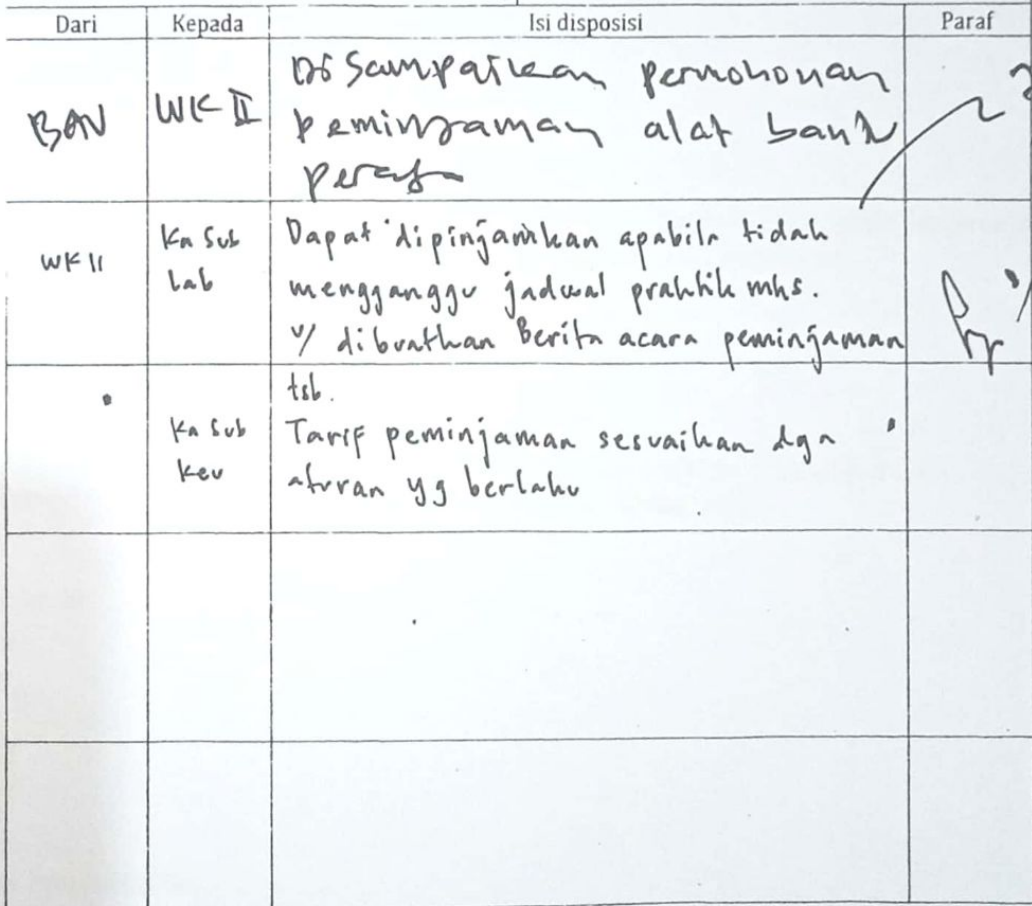 Dari Kepada Isi disposisi Paraf
BAN WK II Disampaikan permohonan
peminjaman alat bantu
peraga
WK II Ka Sub Lab Dapat dipinjamkan apabila tidak
mengganggu jadwal praktik mhs.
u/ dibuatkan Berita acara peminjaman
tsb.
Ka Sub Keu Tarif peminjaman sesuaikan dgn
aturan yg berlaku